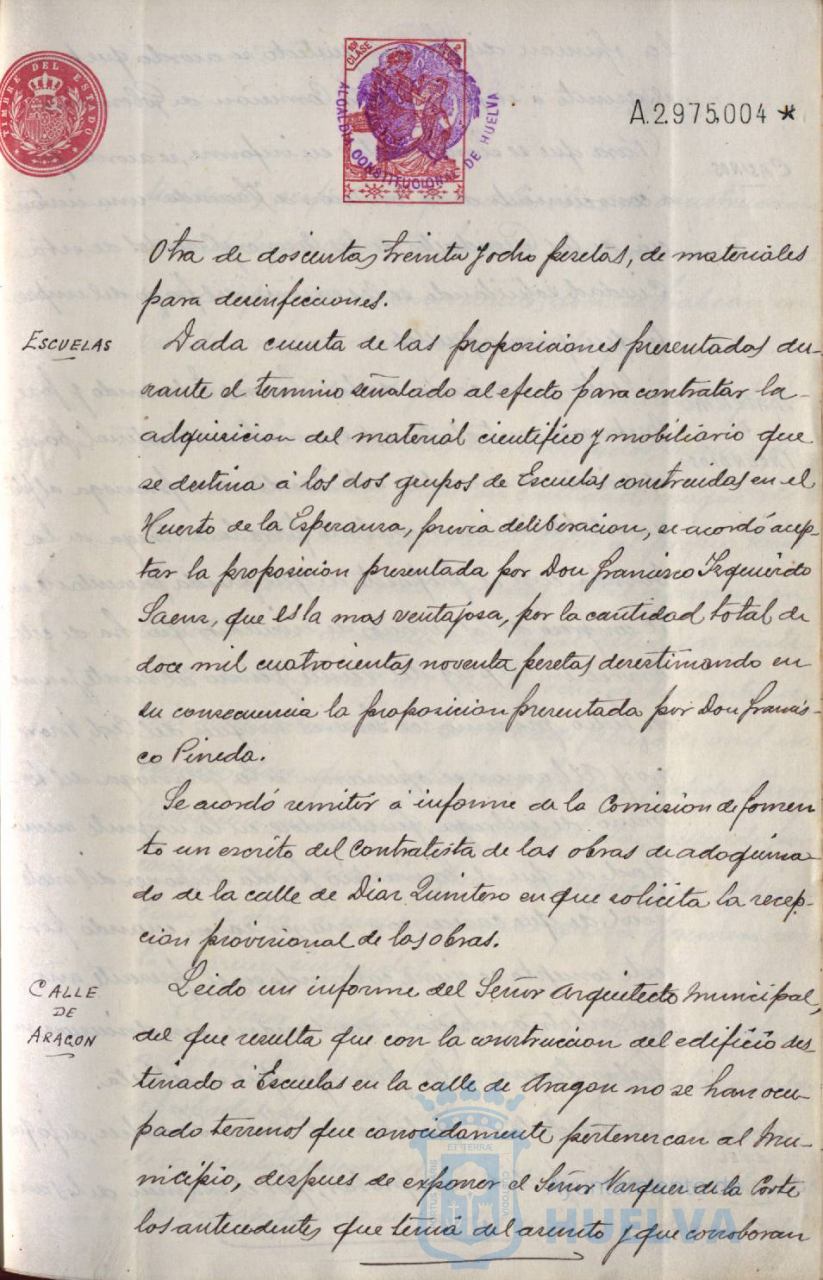 TIMBRE DEL ESTADO
CLASE
ALCALDIA CONSTITUCIONAL DE HUELVA
A.2.975,004 *
Otra de doscientas treinta y ocho pesetas, de materiales
para desinfecciones.
ESCUELAS
Dada cuenta de las proposiciones presentadas du-
rante el termino señalado al efecto para contratar la
adquisicion del material cientifico y mobiliario que
se destina á los dos grupos de Escuelas construidas en el
Huerto de la Esperanza, previa deliberacion, se acordó acep-
tar la proposicion presentada por Don Francisco Izquierdo
Saenz, que es la mas ventajosa, por la cantidad total de
doce mil cuatrocientas noventa pesetas desestimando en
su consecuencia la proposicion presentada por Don Francis-
co Pineda.
Se acordó remitir á informe de la Comision de fomen
to un escrito del Contratista de las obras de adoquina
do de la calle de Diaz Quintero en que solicita la recep-
cion provisional de las obras.
CALLE
DE
ARAGON
Leido un informe del Señor Arquitecto Municipal,
del que resulta que con la construccion del edificio des
tinado á Escuelas en la calle de Aragon no se han ocu-
pado terrenos que conocidamente pertenezcan al Mu-
nicipio, despues de exponer el Señor Vazquez de la Corte
los antecedentes que tenia del asunto y que corroboran
HUELVA